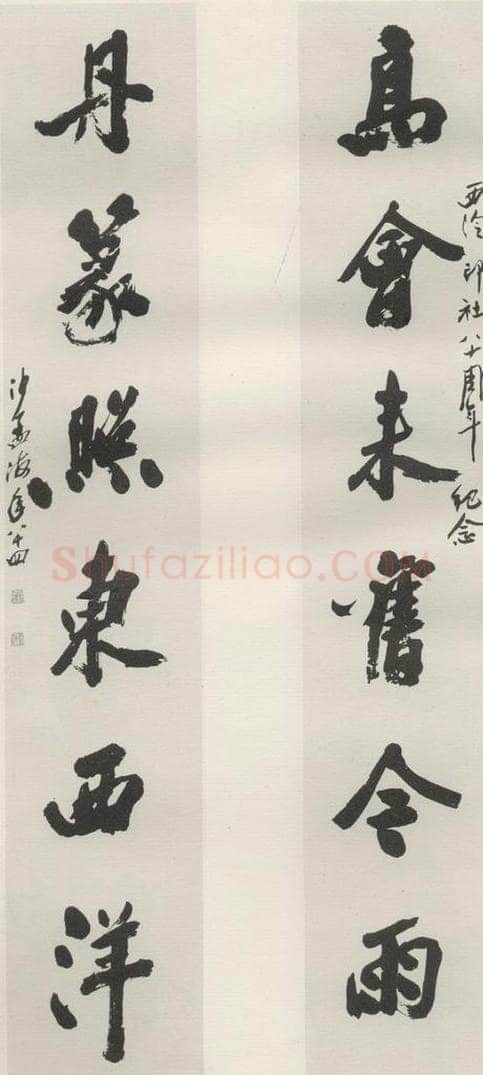 高會来舊今雨
西泠印社八十周年紀念
丹篆暎東西洋
沙孟海年八十四
Shufaziliao.COM